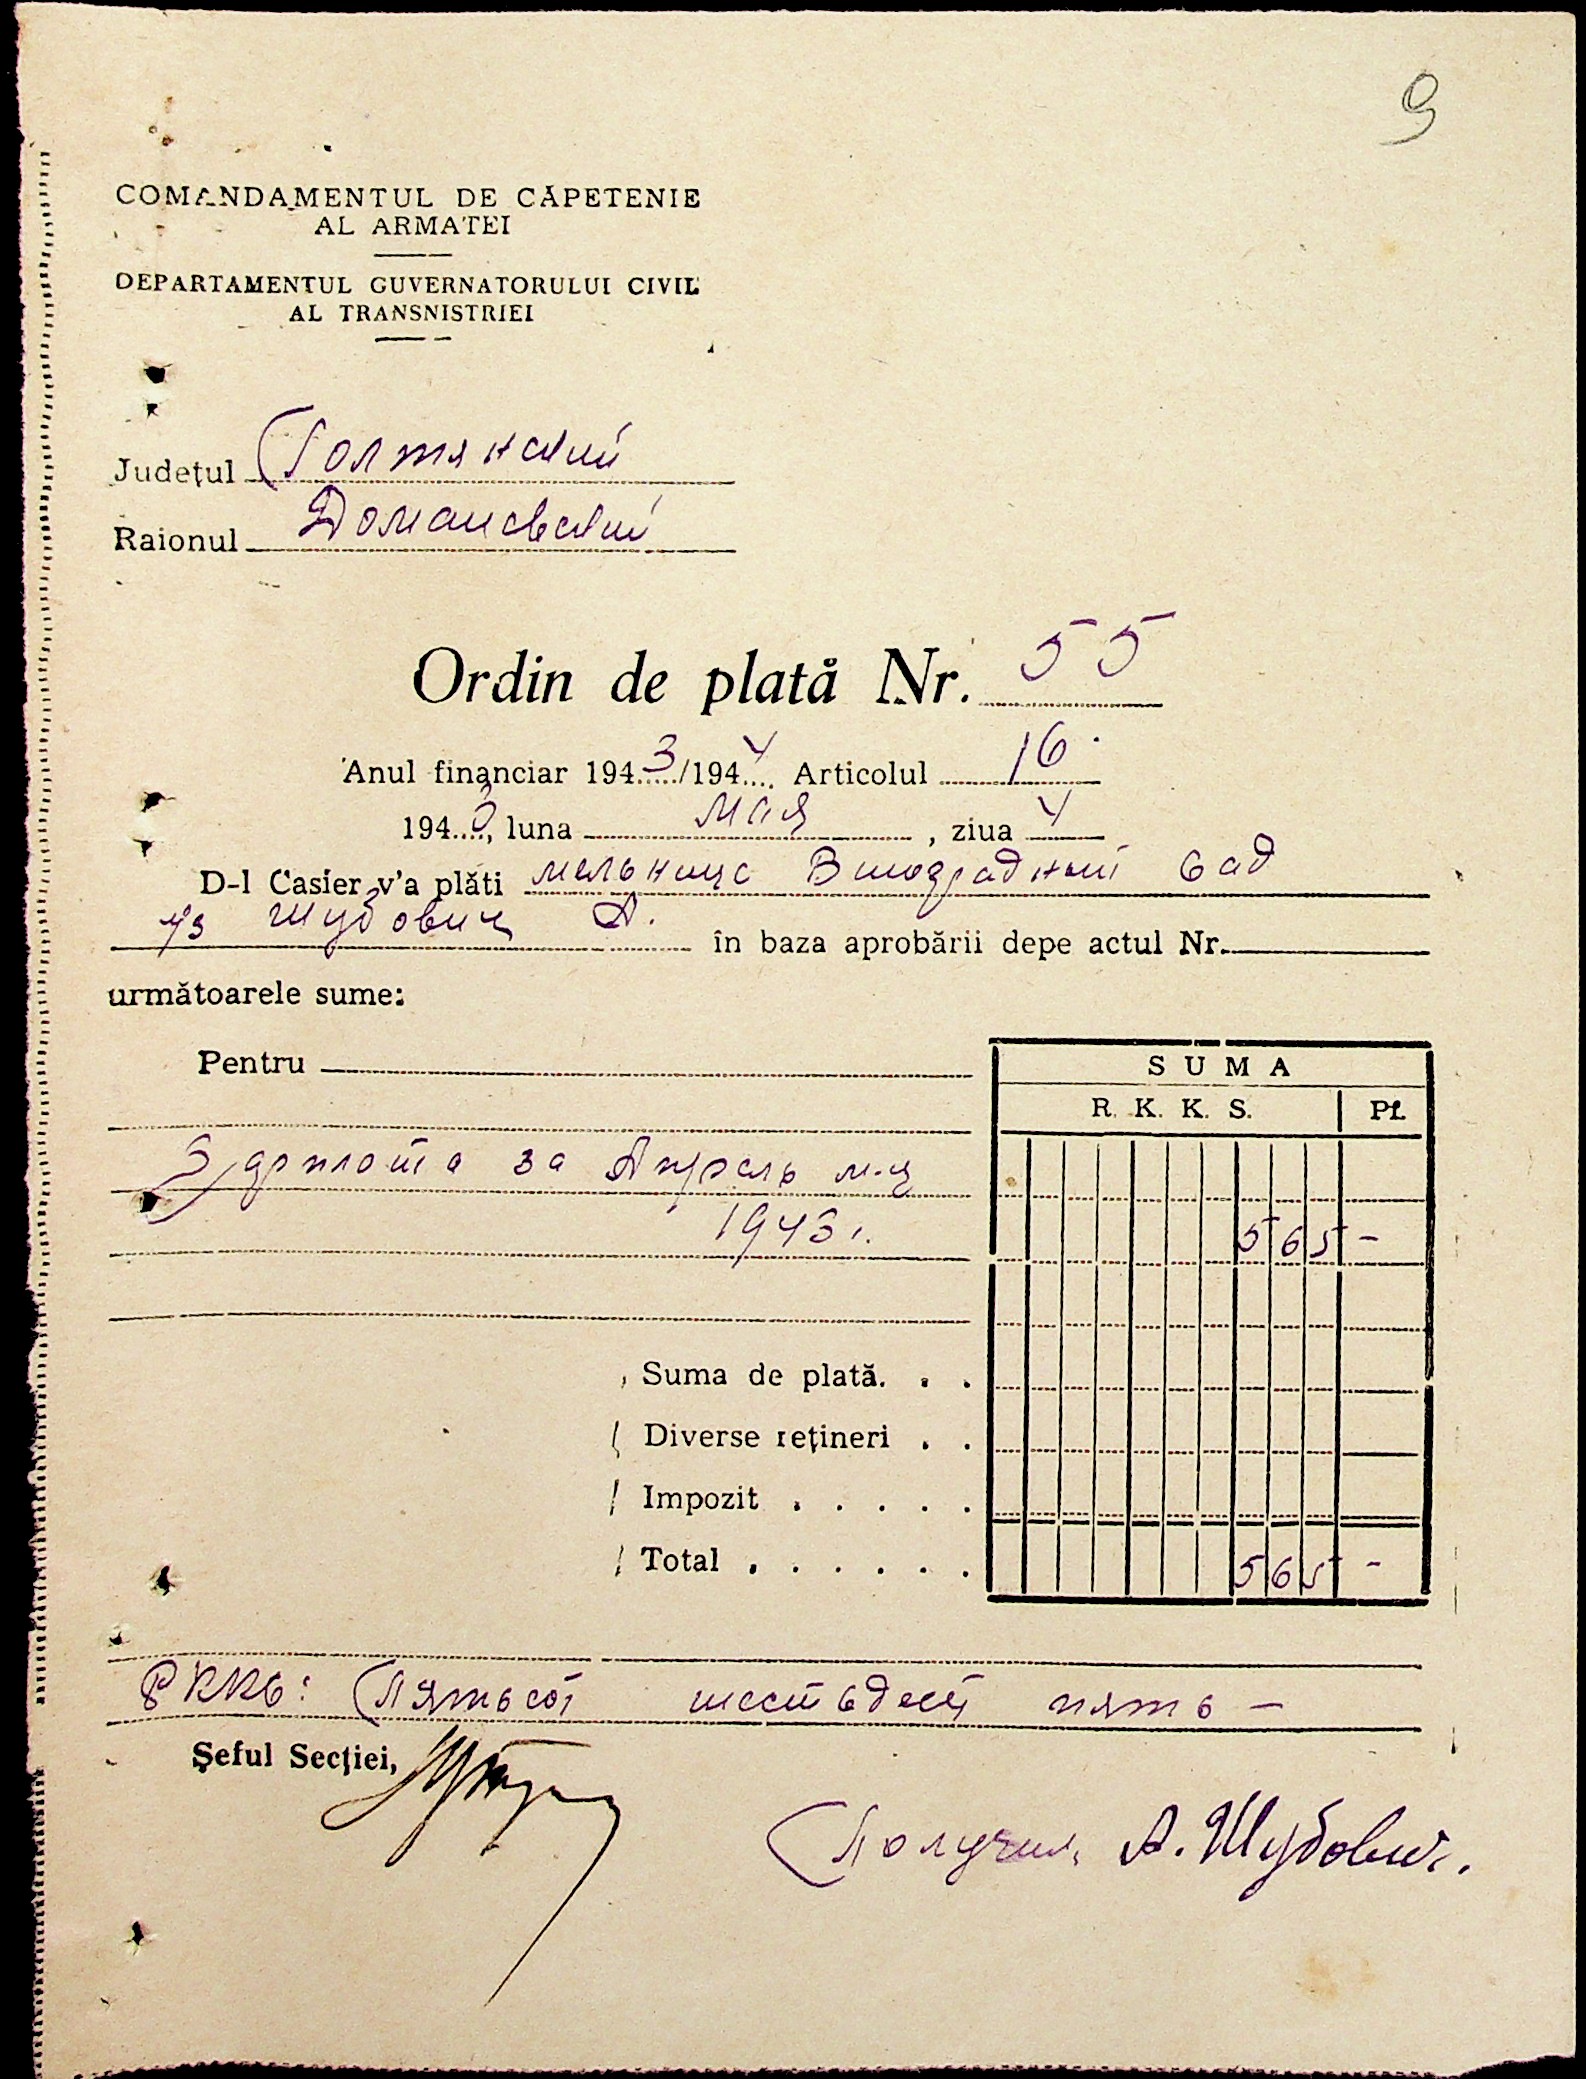 9
COMANDAMENTUL DE CĂPETENIE
AL ARMATEI
DEPARTAMENTUL GUVERNATORULUI CIVIL
AL TRANSNISTRIEI
Județul Голтянский
Raionul Домановский
Ordin de plată Nr. 55
Anul financiar 1943/1944 Articolul 16.
1943, luna мая, ziua 4
D-l Casier v'a plăti мельница Виноградный Сад
Шубович А. în baza aprobării depe actul Nr.
următoarele sume:
Pentru
SUMA
R. K. K. S. Pf.
Зарплата за Апрель м-ц
1943 г. 565 -
Suma de plată. . .
Diverse rețineri . .
Impozit . . . . .
Total . . . . . . 565 -
РККС: Пятьсот шестьдесят пять —
Șeful Secției,
Получил А. Шубович.